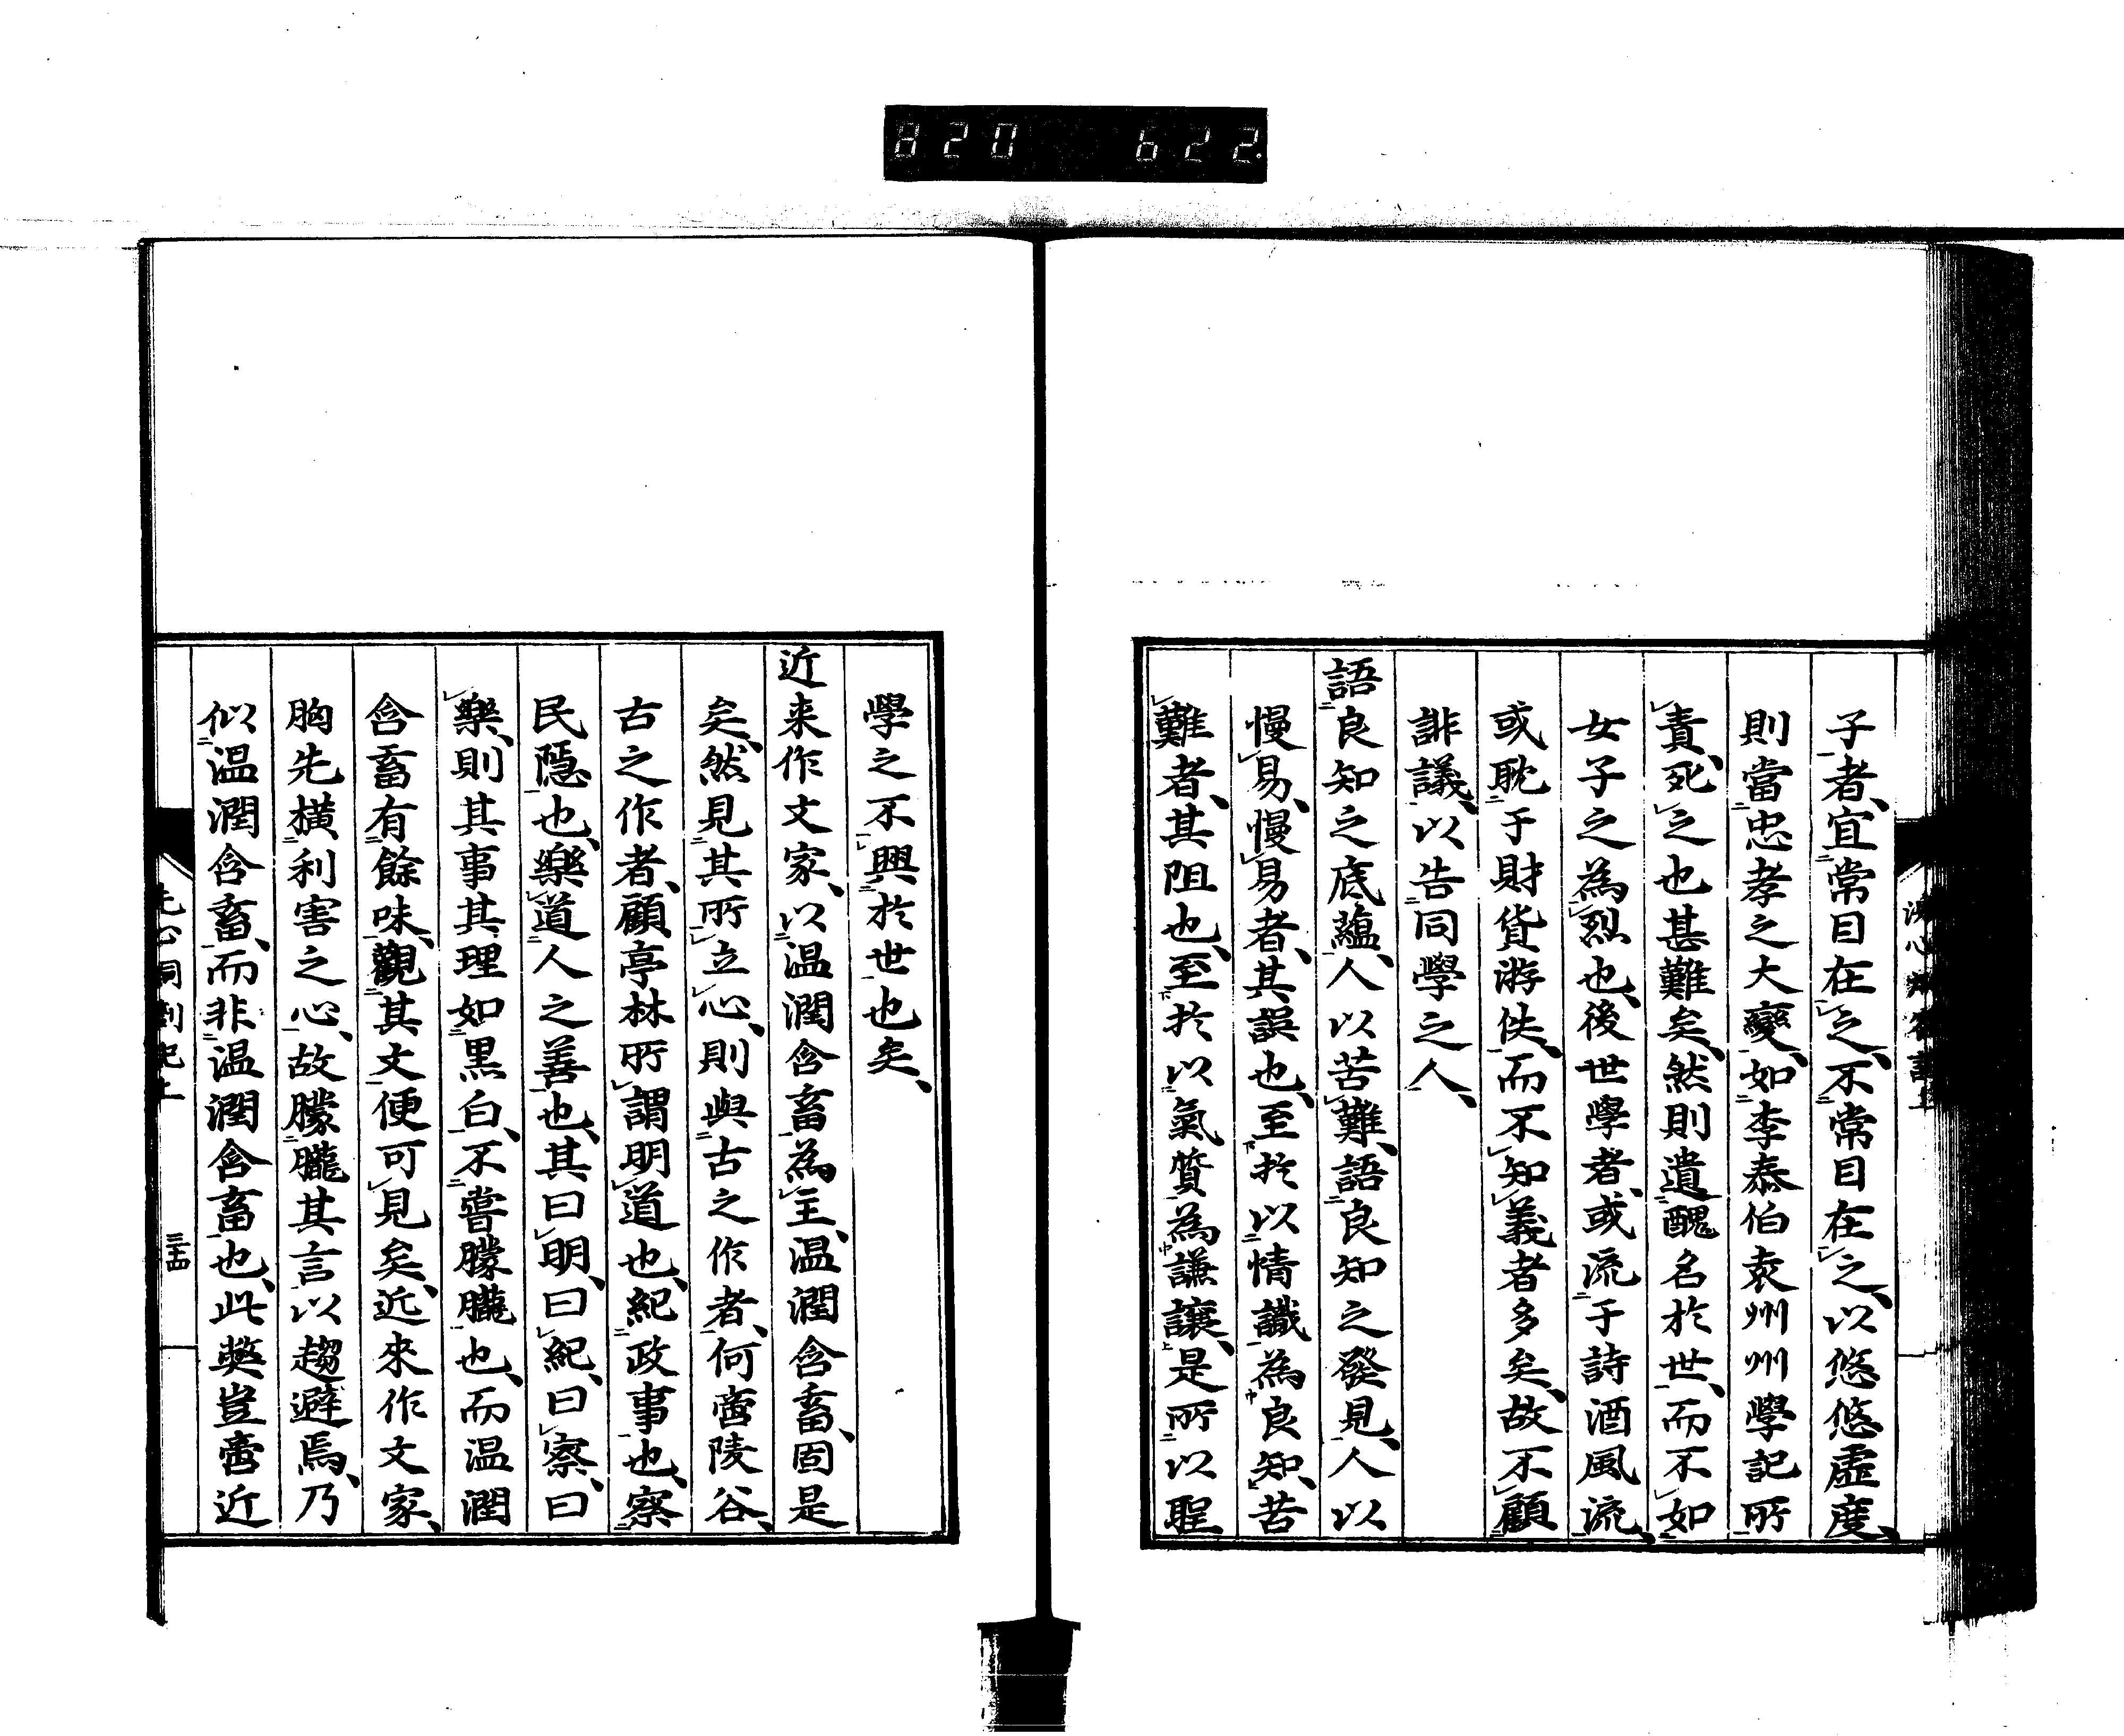 820 622
子者、宜常目在之、不常目在之、以悠悠虛度、
則當忠孝之大變、如李泰伯袁州州學記所
責、死之也甚難矣、然則遺醜名於世、而不如
女子之為烈也、後世學者、或流于詩酒風流、
或耽于財貨游佚、而不知義者多矣、故不顧
誹議、以告同學之人、
語良知之底蘊、人以苦難、語良知之發見、人以
慢易、慢易者、其誤也、至於以情識為良知、苦
難者、其阻也、至於以氣質為謙讓、是所以聖
學之不興於世也矣、
近来作文家、以温潤含畜為主、温潤含畜、固是
矣、然見其所立心、則與古之作者、何啻陵谷、
古之作者、顧亭林所謂明道也、紀政事也、察
民隱也、樂道人之善也、其曰明、曰紀、曰察、曰
樂、則其事其理如黒白、不嘗朦朧也、而温潤
含畜有餘味、觀其文便可見矣、近來作文家、
胸先横利害之心、故朦朧其言以趨避焉、乃
似温潤含畜、而非温潤含畜也、此獘豈啻近
三十四